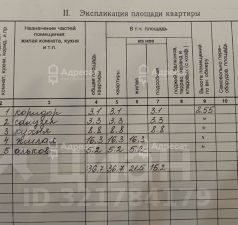 II. Экспликация площади квартиры
Назначение частей помещения: жилая комната, кухня и т.п.
общая площадь квартиры
В т. ч. площадь
квартиры
из нее
жилая
подсобная
Высота помещений по вн. обмеру
2 3 4 5 6 7 8 9 10
1 коридор 3.1 3.1 3.1 2.55
2 санузел 3.3 3.3 3.3 "
3 кухня 8.8 8.8 8.8 "
4 жилая 16.3 16.3 16.3 "
5 альков 5.2 5.2 5.2 "
36.7 36.7 21.5 15.2